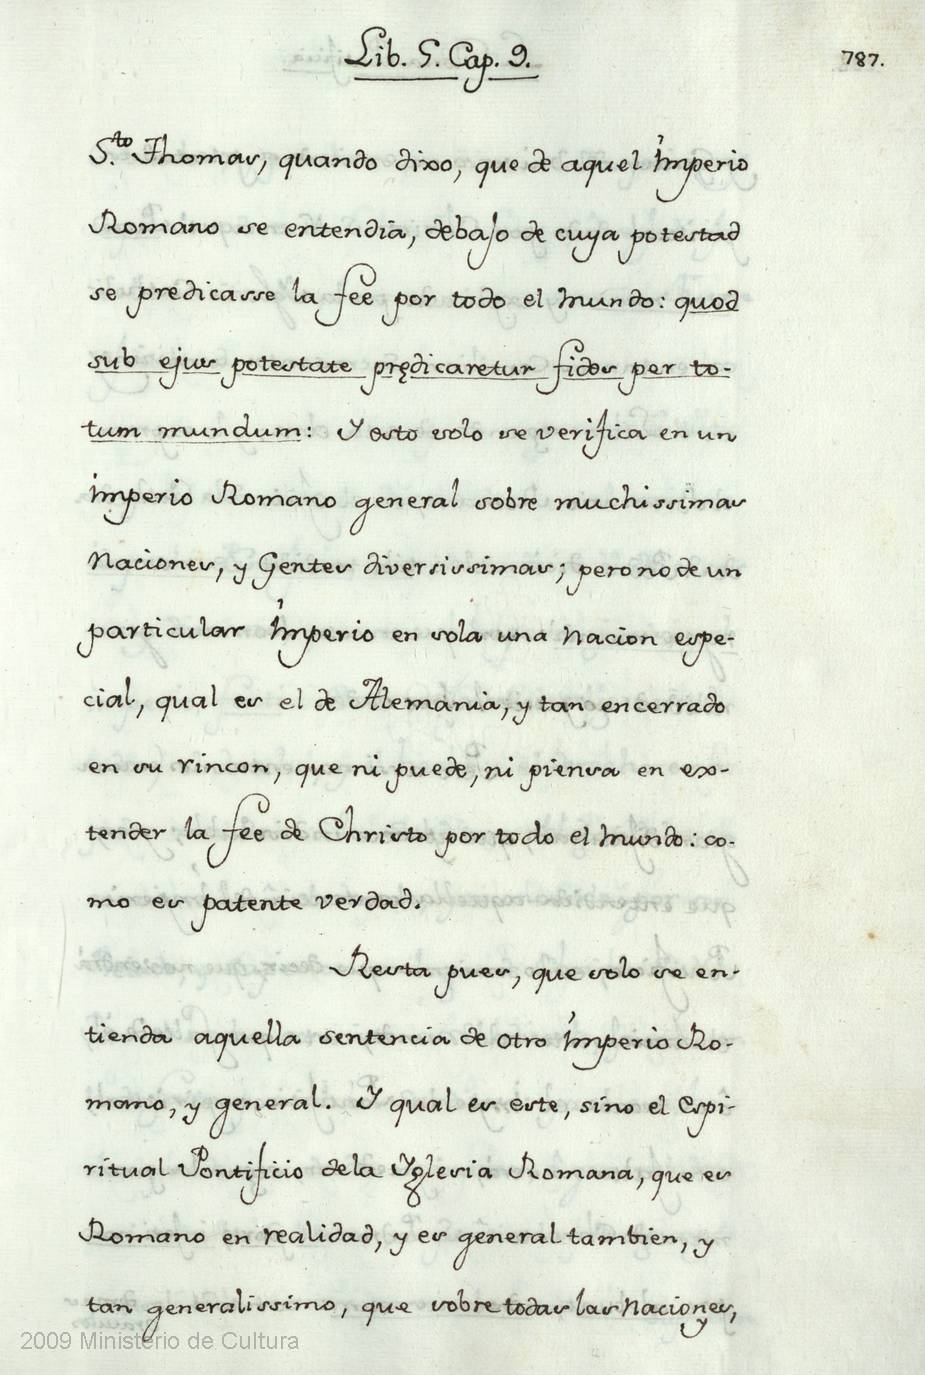 Lib. 5. Cap. 9.
787.
S.to Thomas, quando dixo, que de aquel Imperio
Romano se entendia, debajo de cuya potestad
se predicasse la fee por todo el mundo: quod
sub ejus potestate prędicaretur fides per to-
tum mundum: Y esto solo se verifica en un
imperio Romano general sobre muchissimas
Naciones, y Gentes diversissimas; pero no de un
particular Imperio en sola una Nacion espe-
cial, qual es el de Alemania, y tan encerrado
en su rincon, que ni puede, ni piensa en ex-
tender la fee de Christo por todo el mundo: co-
mo es patente verdad.
Resta pues, que solo se en-
tienda aquella sentencia de otro Imperio Ro-
mano, y general. Y qual es este, sino el Espi-
ritual Pontificio dela Yglesia Romana, que es
Romano en realidad, y es general tambien, y
tan generalissimo, que sobre todas las Naciones,
y
2009 Ministerio de Cultura